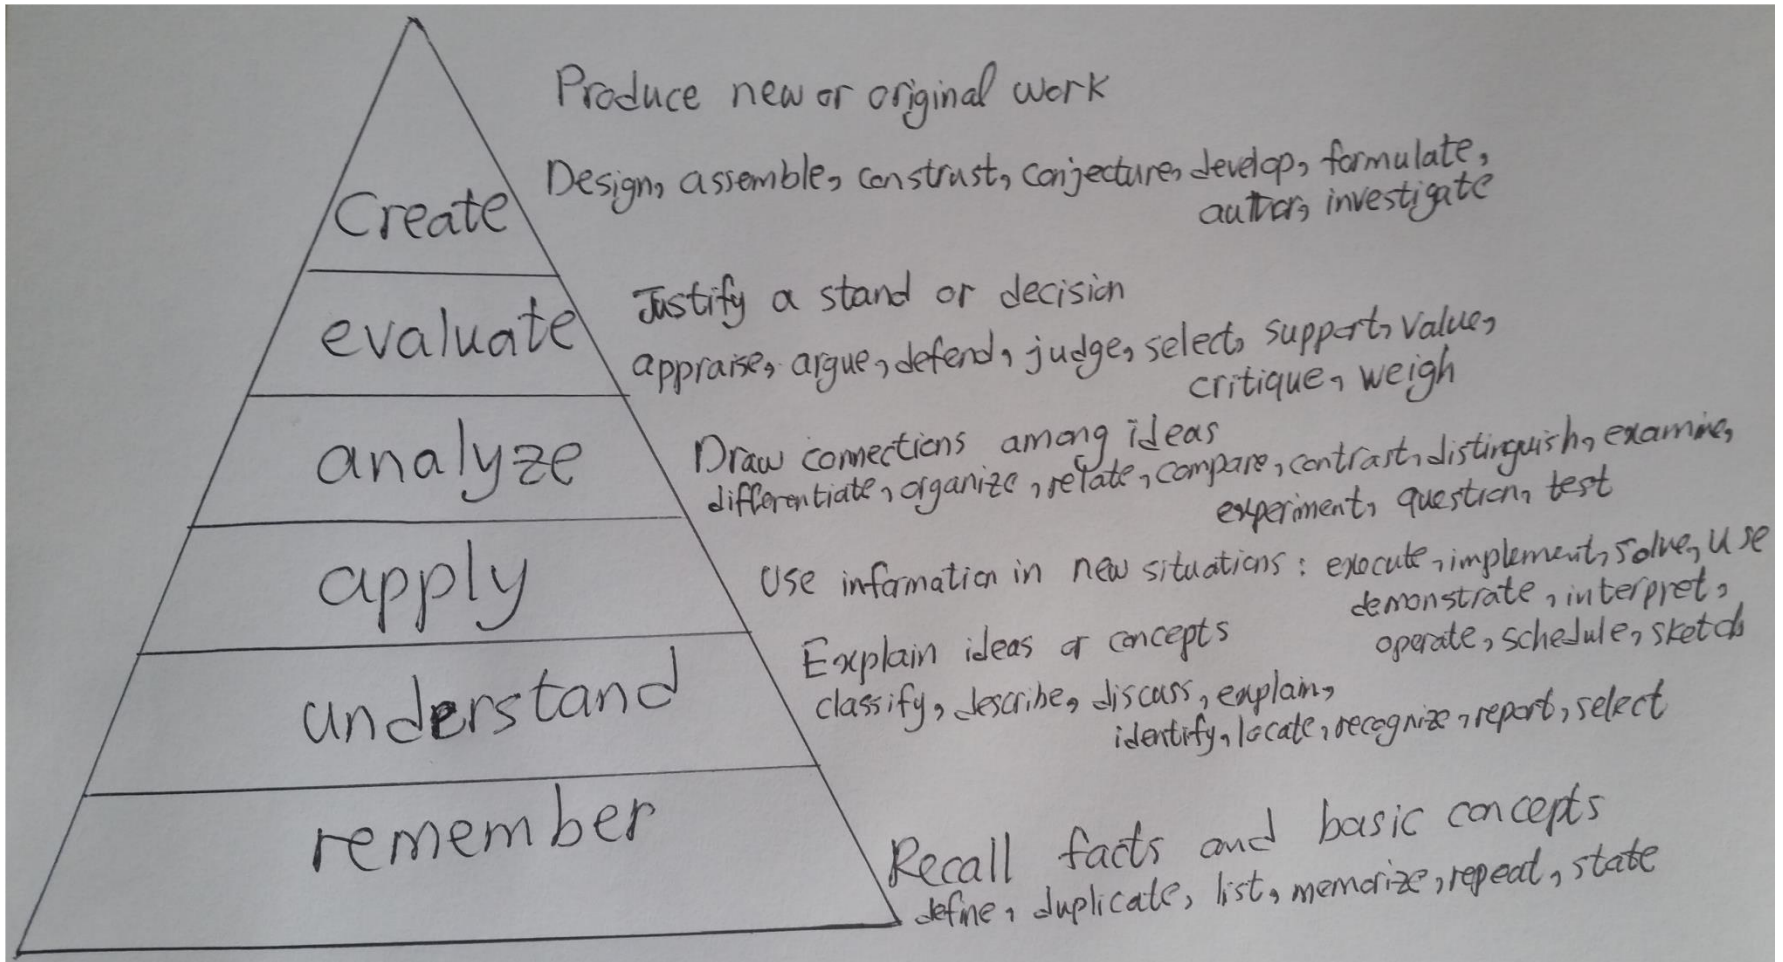 Produce new or original work
Design, assemble, construst, conjecture, develop, formulate,
author, investigate
Create
Justify a stand or decision
appraise, argue, defend, judge, select, support, value,
critique, weigh
evaluate
Draw connections among ideas
differentiate, organize, relate, compare, contrast, distinguish, examine,
experiment, question, test
analyze
Use information in new situations : execute, implement, solve, use
demonstrate, interpret,
operate, schedule, sketch
apply
Explain ideas or concepts
classify, describe, discuss, explain,
identify, locate, recognize, report, select
understand
Recall facts and basic concepts
define, duplicate, list, memorize, repeat, state
remember